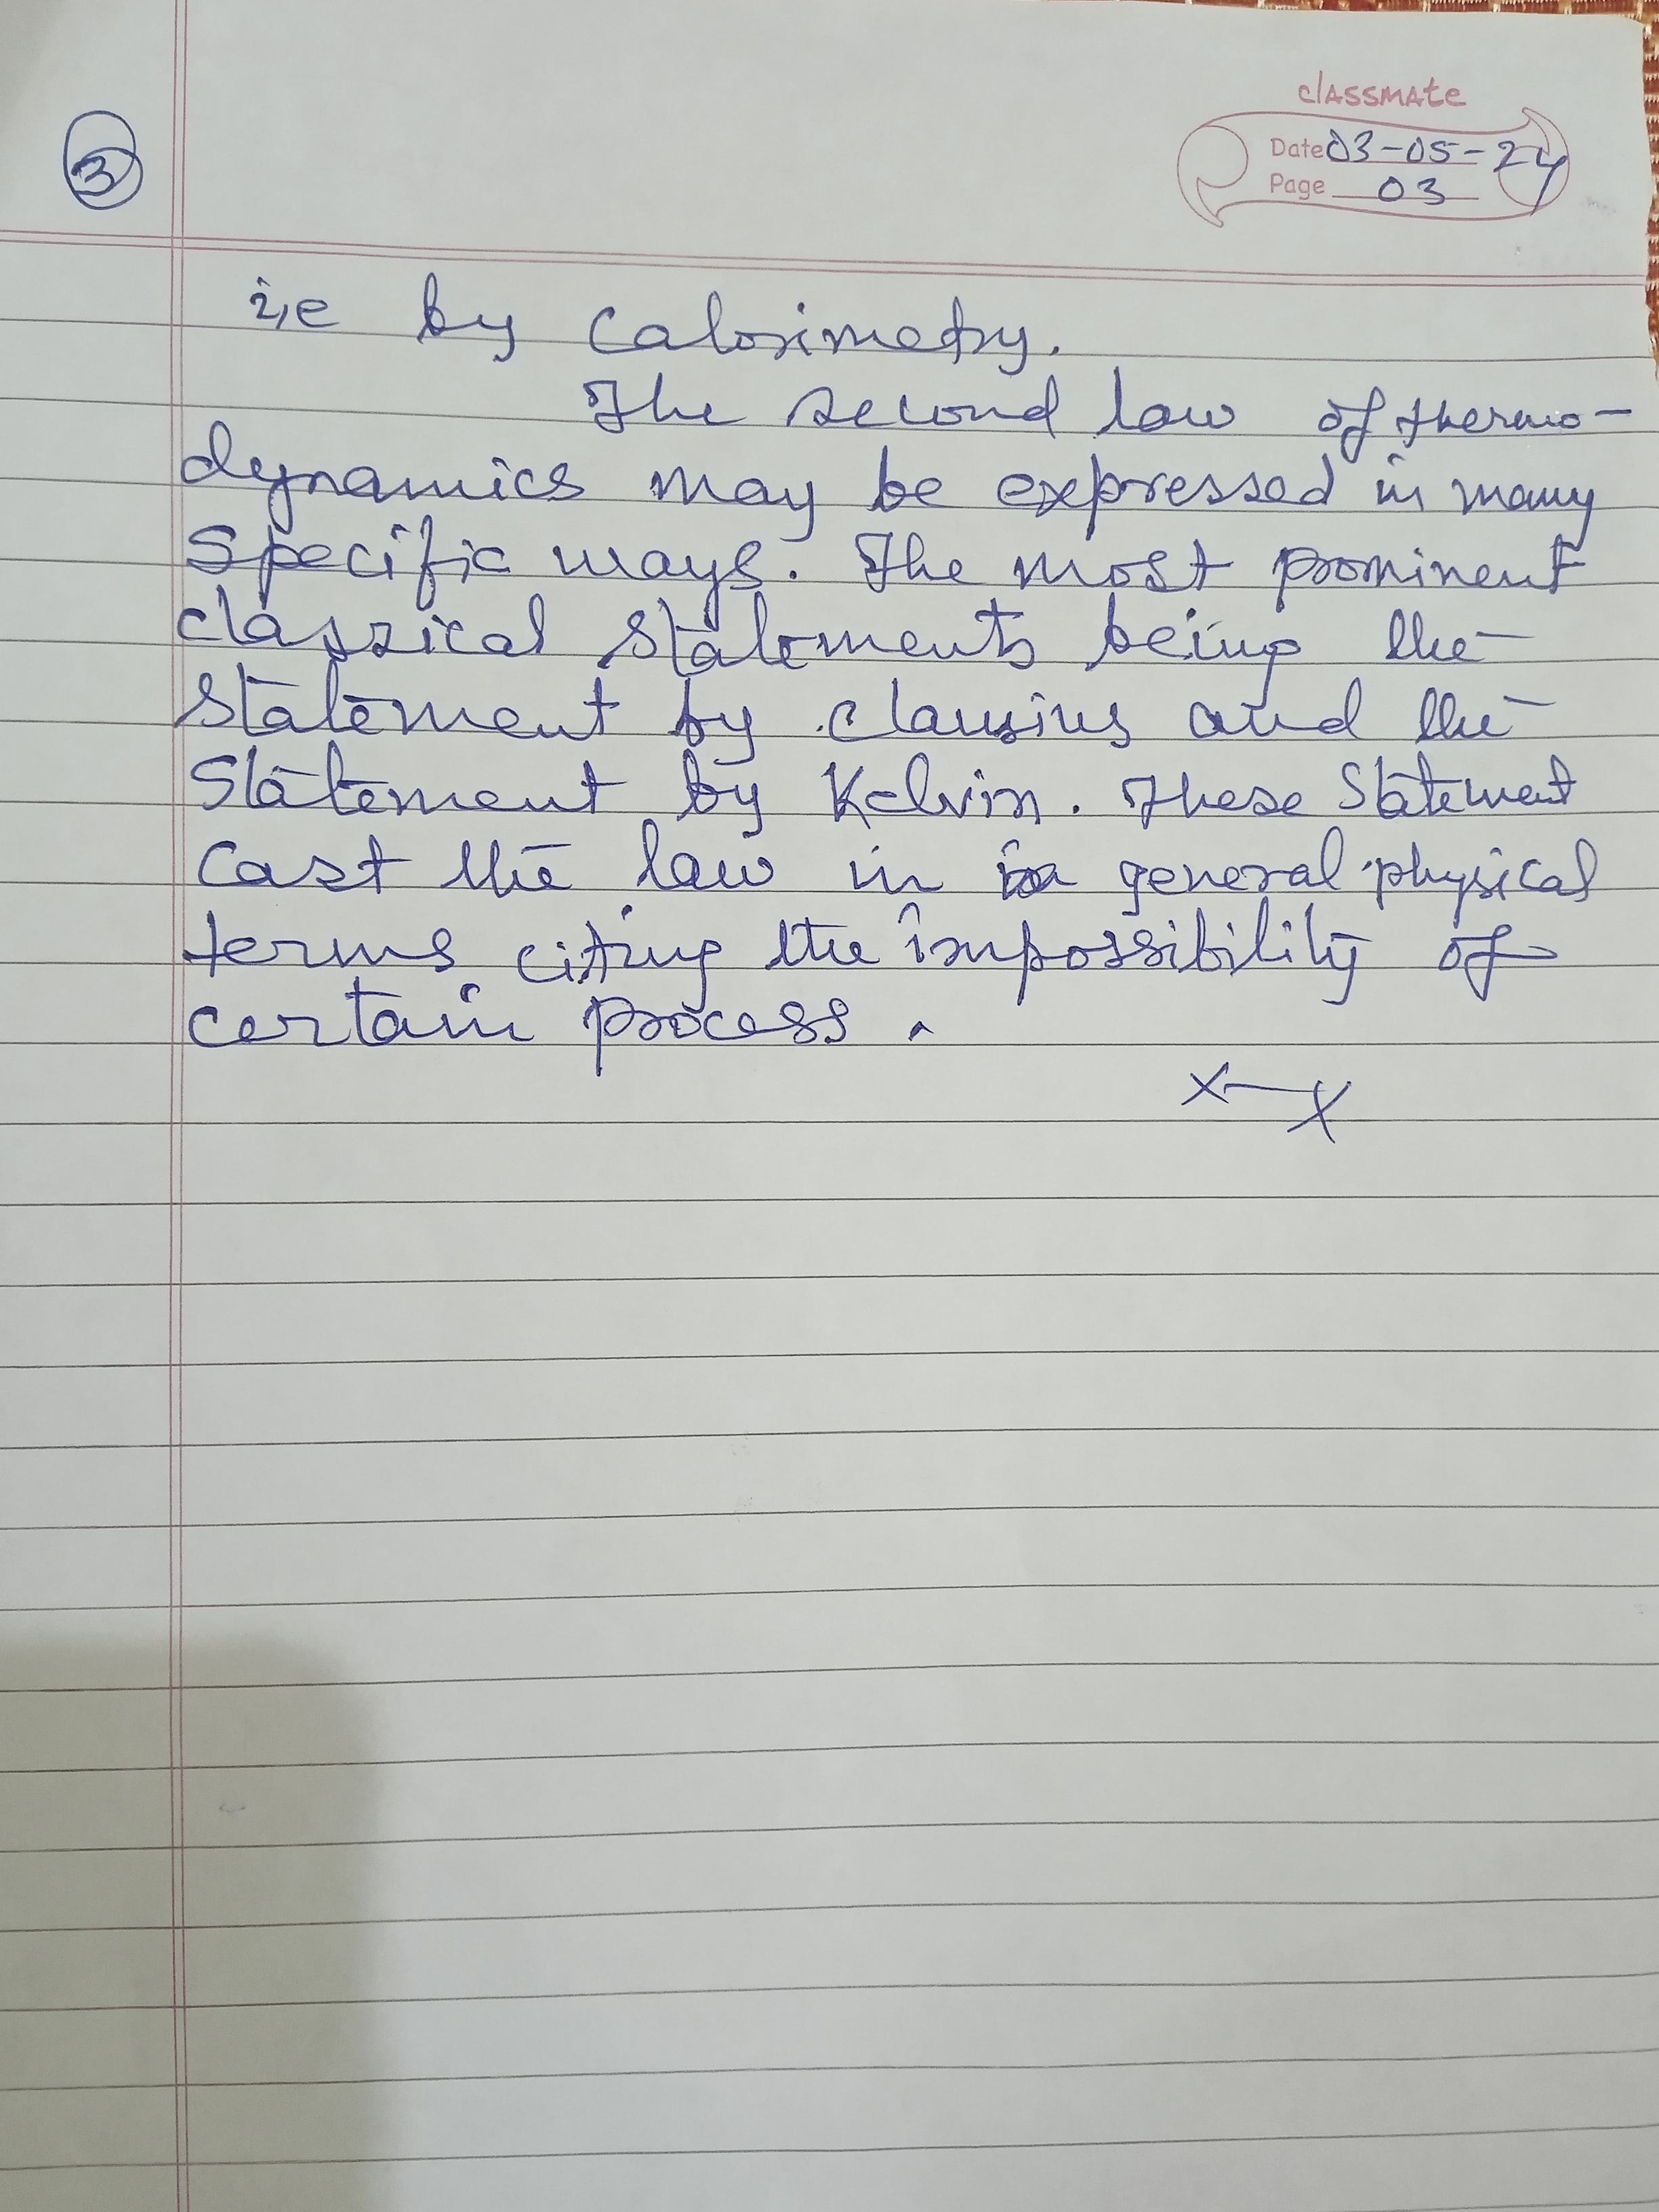 classmate
3
Date 03-05-24
Page 03
i,e by Calorimetry.
The second law of thermo-
dynamics may be expressed in many
Specific ways. The most prominent
classical statements being the
statement by clausius and the
Statement by Kelvin. These Statement
Cast the law in general physical
terms citing the impossibility of
certain process.
x—x